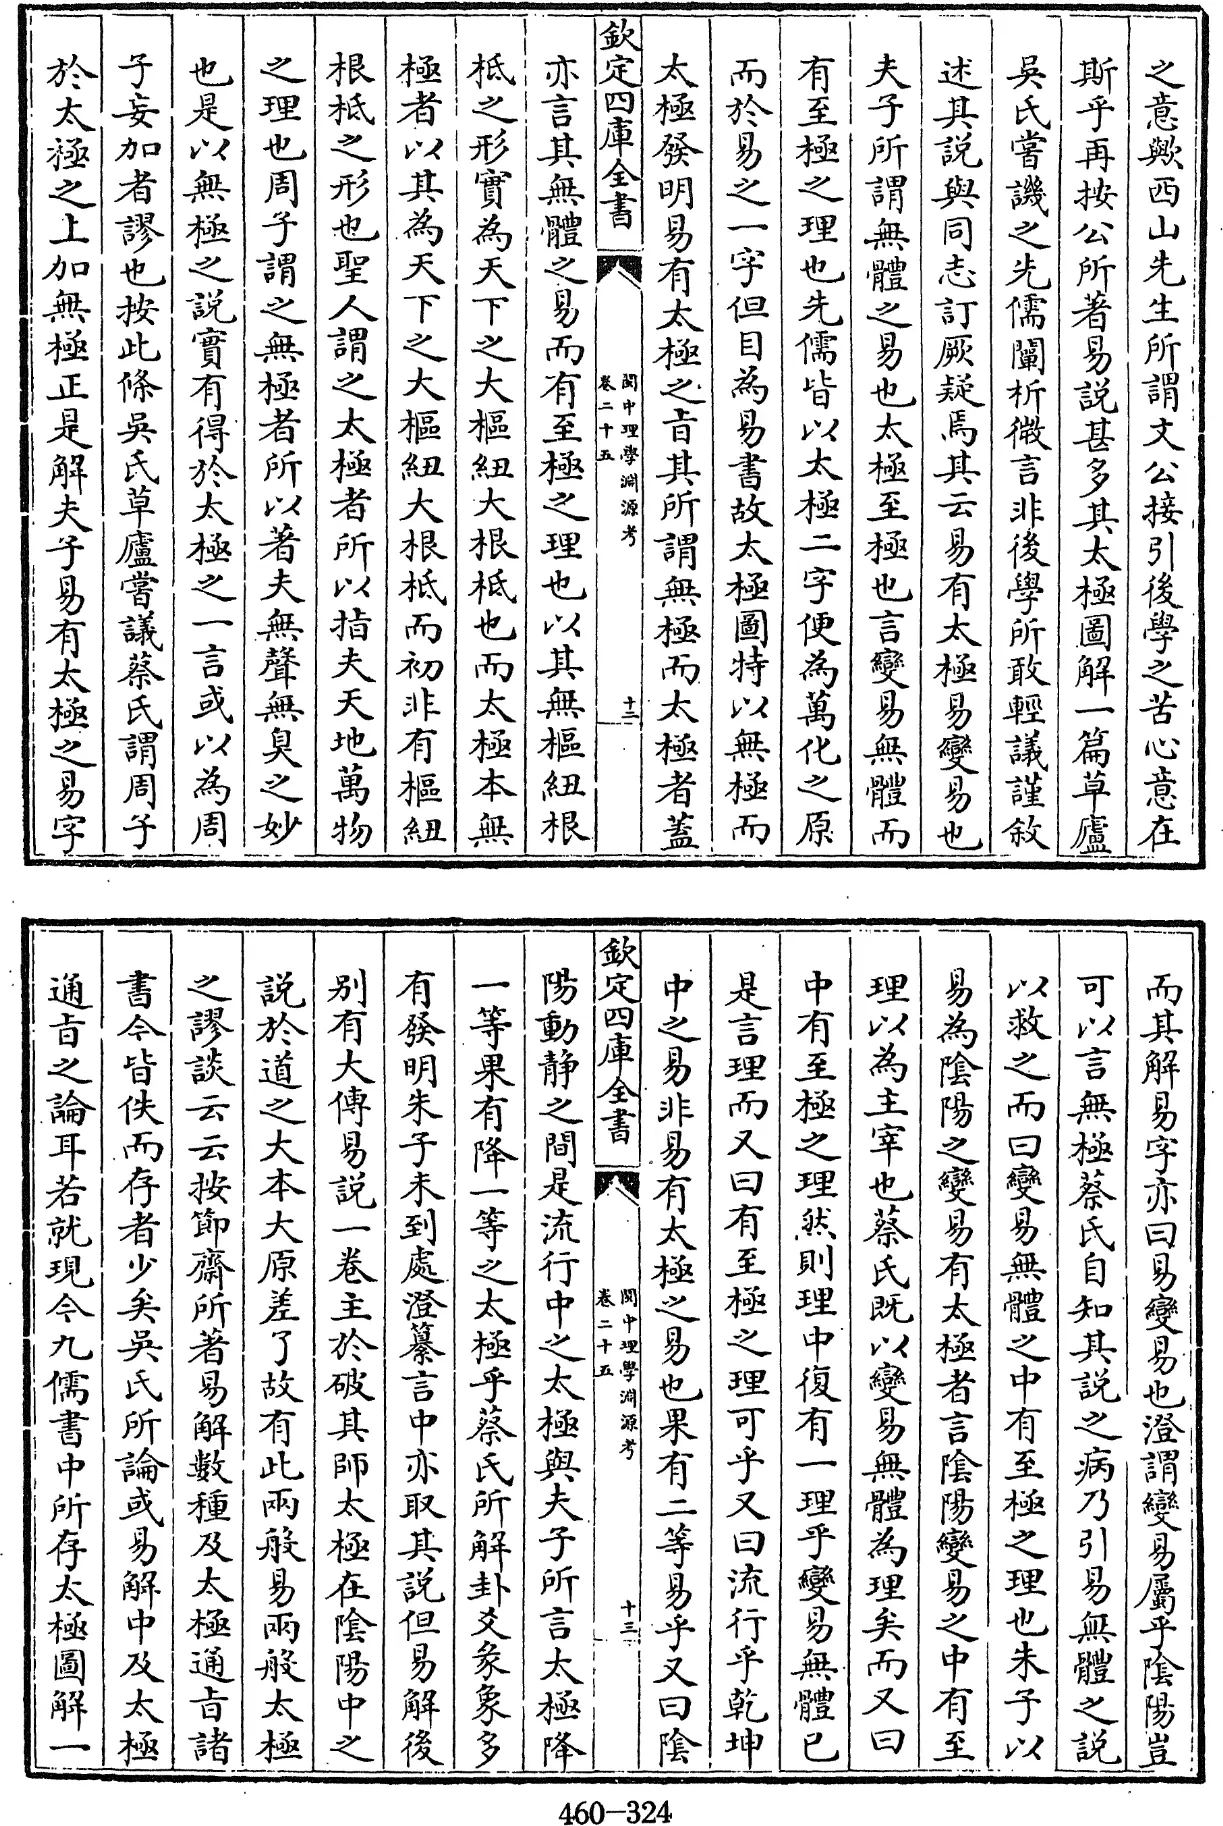 之意歟西山先生所謂文公接引後學之苦心意在
斯乎再按公所著易說甚多其太極圖解一篇草廬
吳氏嘗譏之先儒闡析微言非後學所敢輕議謹敘
述其說與同志訂厥疑焉其云易有太極易變易也
夫子所謂無體之易也太極至極也言變易無體而
有至極之理也先儒皆以太極二字便為萬化之原
而於易之一字但目為易書故太極圖特以無極而
太極發明易有太極之㫖其所謂無極而太極者蓋
欽定四庫全書
閩中理學淵源考
卷二十五
十二
亦言其無體之易而有至極之理也以其無樞紐根
柢之形實為天下之大樞紐大根柢也而太極本無
極者以其為天下之大樞紐大根柢而初非有樞紐
根柢之形也聖人謂之太極者所以指夫天地萬物
之理也周子謂之無極者所以著夫無聲無臭之妙
也是以無極之說實有得於太極之一言或以為周
子妄加者謬也按此條吳氏草廬嘗議蔡氏謂周子
於太極之上加無極正是解夫子易有太極之易字
而其解易字亦曰易變易也澄謂變易屬乎陰陽豈
可以言無極蔡氏自知其說之病乃引易無體之說
以救之而曰變易無體之中有至極之理也朱子以
易為陰陽之變易有太極者言陰陽變易之中有至
理以為主宰也蔡氏既以變易無體為理矣而又曰
中有至極之理然則理中復有一理乎變易無體已
是言理而又曰有至極之理可乎又曰流行乎乾坤
中之易非易有太極之易也果有二等易乎又曰陰
欽定四庫全書
閩中理學淵源考
卷二十五
十三
陽動静之間是流行中之太極與夫子所言太極降
一等果有降一等之太極乎蔡氏所解卦爻彖象多
有發明朱子未到處澄纂言中亦取其說但易解後
别有大傳易說一卷主於破其師太極在陰陽中之
說於道之大本大原差了故有此兩般易兩般太極
之謬談云云按節齋所著易解數種及太極通㫖諸
書今皆佚而存者少矣吳氏所論或易解中及太極
通㫖之論耳若就現今九儒書中所存太極圖解一
460-324